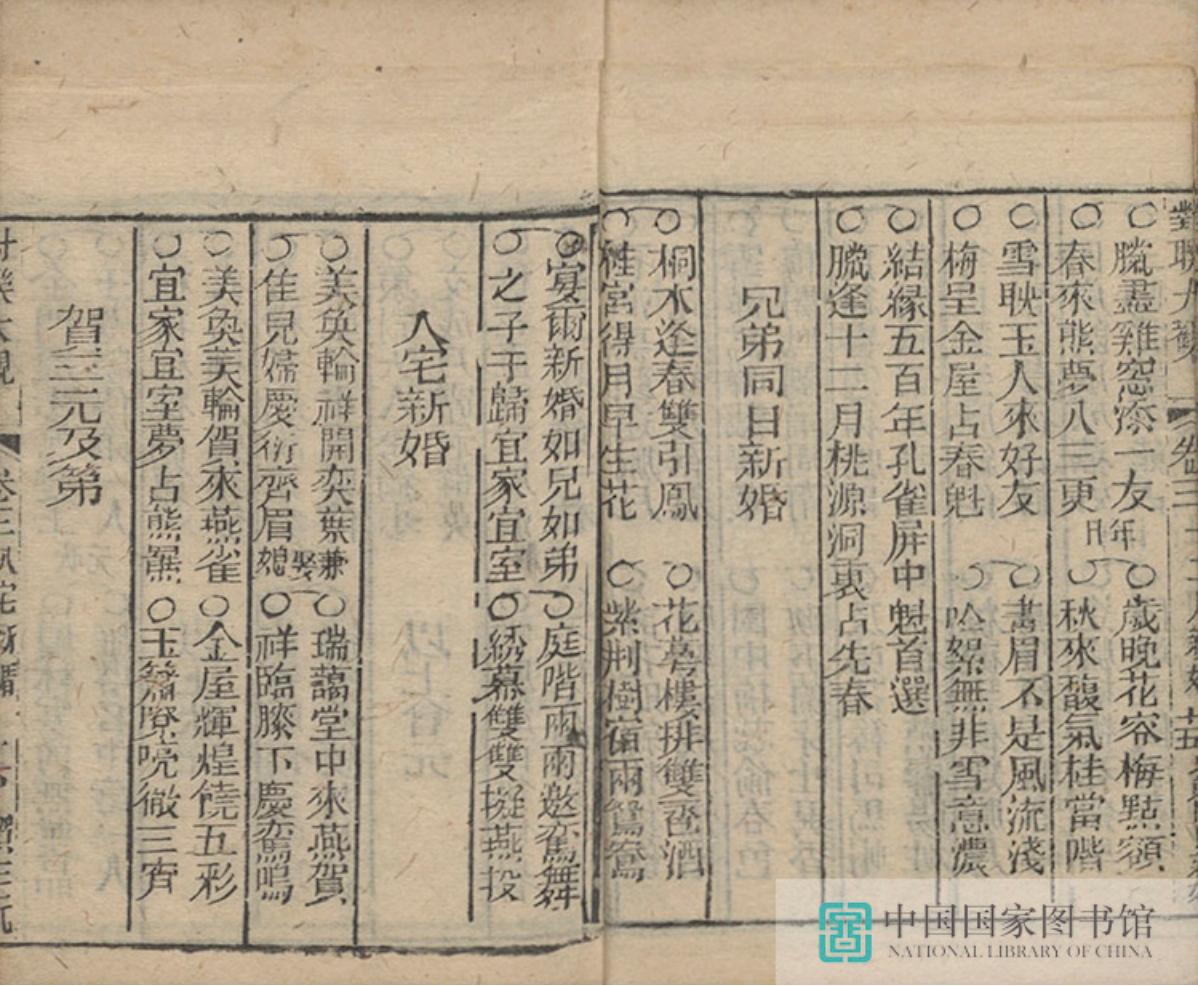 對聯大觀 卷三
臘盡雞窓添一友 年 歲晚花容梅點額
春來熊夢八三更 日 秋來馥氣桂當階
雪映玉人來好友 畫眉不是風流淺
梅呈金屋占春魁 吟絮無非雪意濃
結緣五百年孔雀屏中魁首選
臘逢十二月桃源洞裏占先春
兄弟同日新婚
桐木逢春雙引鳳 花萼樓排雙卺酒
桂宮得月早生花 紫荆樹宿兩鴛鴦
宴爾新婚如兄如弟 庭階兩兩邀鸞舞
之子于歸宜家宜室 綉幕雙雙擬燕投
入宅新婚
美奐輪祥開奕葉 兼娶媳 瑞藹堂中來燕賀
佳兒婦慶衍齊眉 祥臨膝下慶鸞鳴
美奐美輪賀來燕雀 金屋輝煌饒五彩
宜家宜室夢占熊羆 玉簫嘹喨徹三宵
賀三元及第
對聯大觀 卷三 入宅新婚
中国国家图书馆
NATIONAL LIBRARY OF CHINA